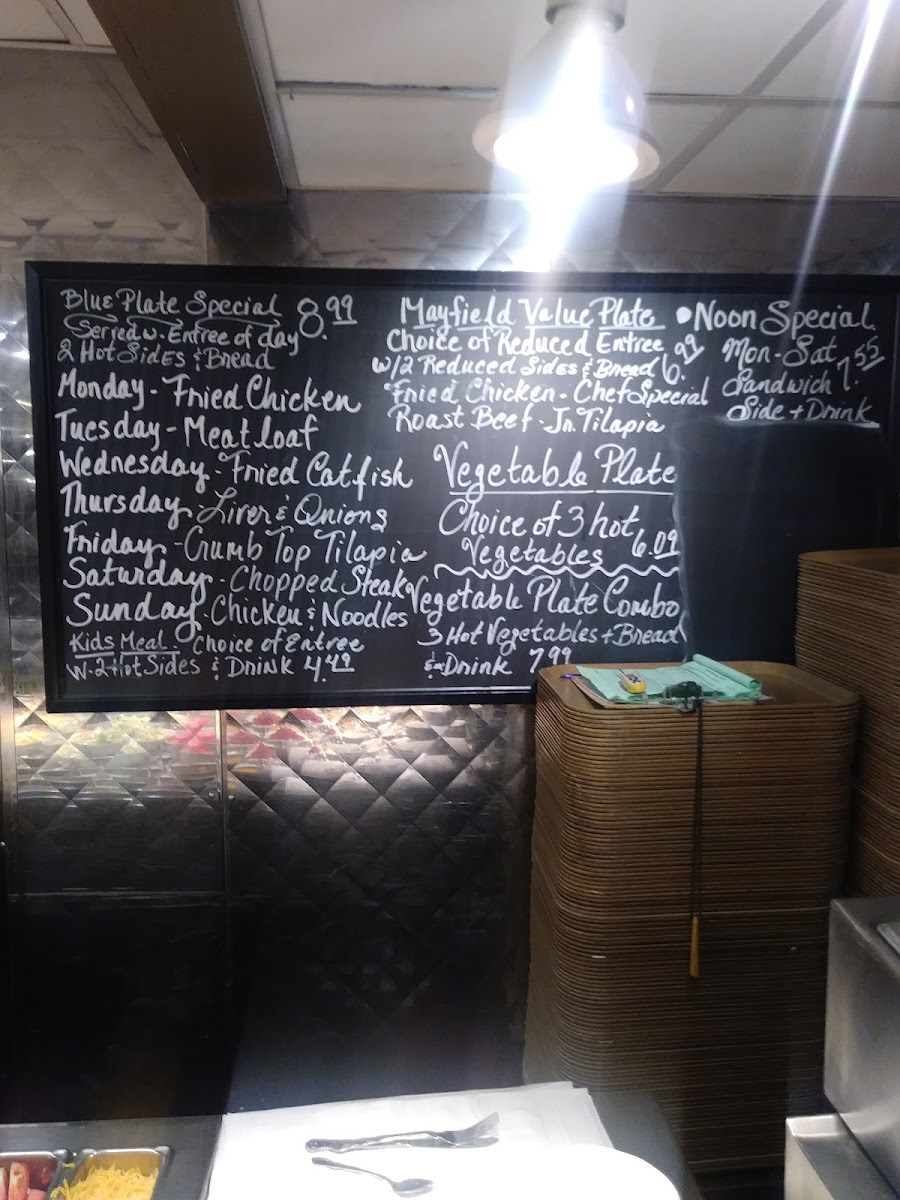 Blue Plate Special 8.99
Served w. Entree of day
2 Hot Sides & Bread
Monday - Fried Chicken
Tuesday - Meatloaf
Wednesday - Fried Catfish
Thursday Liver & Onions
Friday - Crumb Top Tilapia
Saturday - Chopped Steak
Sunday - Chicken & Noodles
Kids Meal - Choice of Entree
w-2 Hot Sides & Drink 4.49
Mayfield Value Plate
Choice of Reduced Entree
w/2 Reduced Sides & Bread 6.99
Fried Chicken - Chef Special
Roast Beef - Jr. Tilapia
Vegetable Plate
Choice of 3 hot
Vegetables 6.09
Vegetable Plate Combo
3 Hot Vegetables + Bread
& Drink 7.99
• Noon Special
Mon - Sat
Sandwich 7.55
Side + Drink